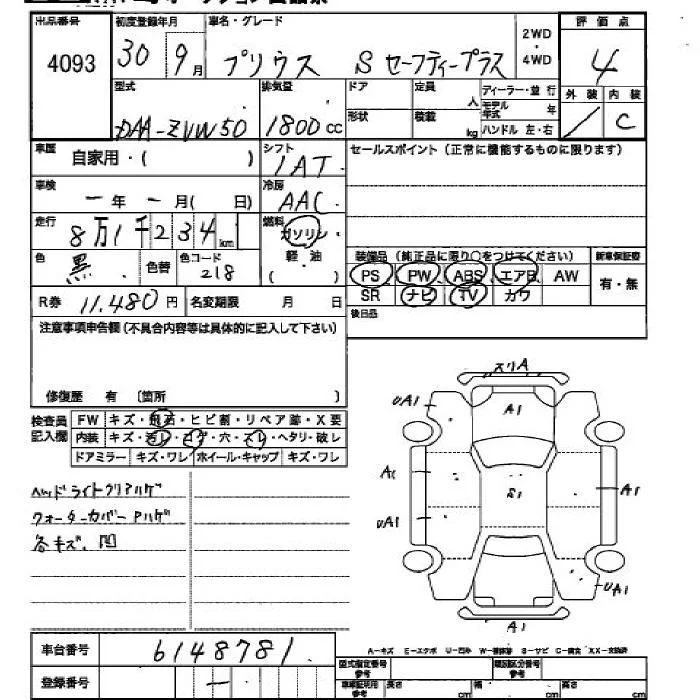 出品番号 4093
初度登録年月 30 9月
車名・グレード プリウス S セーフティープラス
2WD・4WD
評価点 4
外装 / 内装 C
型式 DAA-ZVW50
排気量 1800cc
ドア 形状
定員 人
積載 kg
ディーラー・並行
モデル年式 年
ハンドル 左・右
車歴 自家用・( )
シフト IAT
セールスポイント(正常に機能するものに限ります)
車検 ー年ー月( 日)
冷房 AAC
走行 8万1千234km
燃料 ガソリン 軽・油 ( )
色 黒 色替 色コード 218
装備品(純正品に限り○をつけてください) 新車保証書
PS PW ABS エアB AW 有・無
SR ナビ TV カワ
R券 11,480円 名変期限 月 日
後日品
注意事項申告欄(不具合内容等は具体的に記入して下さい)
修復歴 有 〔箇所 〕
検査員記入欄
FW キズ・飛石・ヒビ割・リペア跡・X要
内装 キズ・汚レ・コゲ・穴・スレ・ヘタリ・破レ
ドアミラー キズ・ワレ ホイール・キャップ キズ・ワレ
ヘッドライトクリアハゲ
クォーターカバーPハゲ
各キズ、凹
スリA
UA1
A1
A1
UA1
A1
UA1
A1
車台番号 6148781
A-キズ E-エクボ U-凹み S-サビ
登録番号 ー
型式指定番号参考
類別区分番号参考
車庫証明用参考 長さ cm 幅 cm 高さ cm